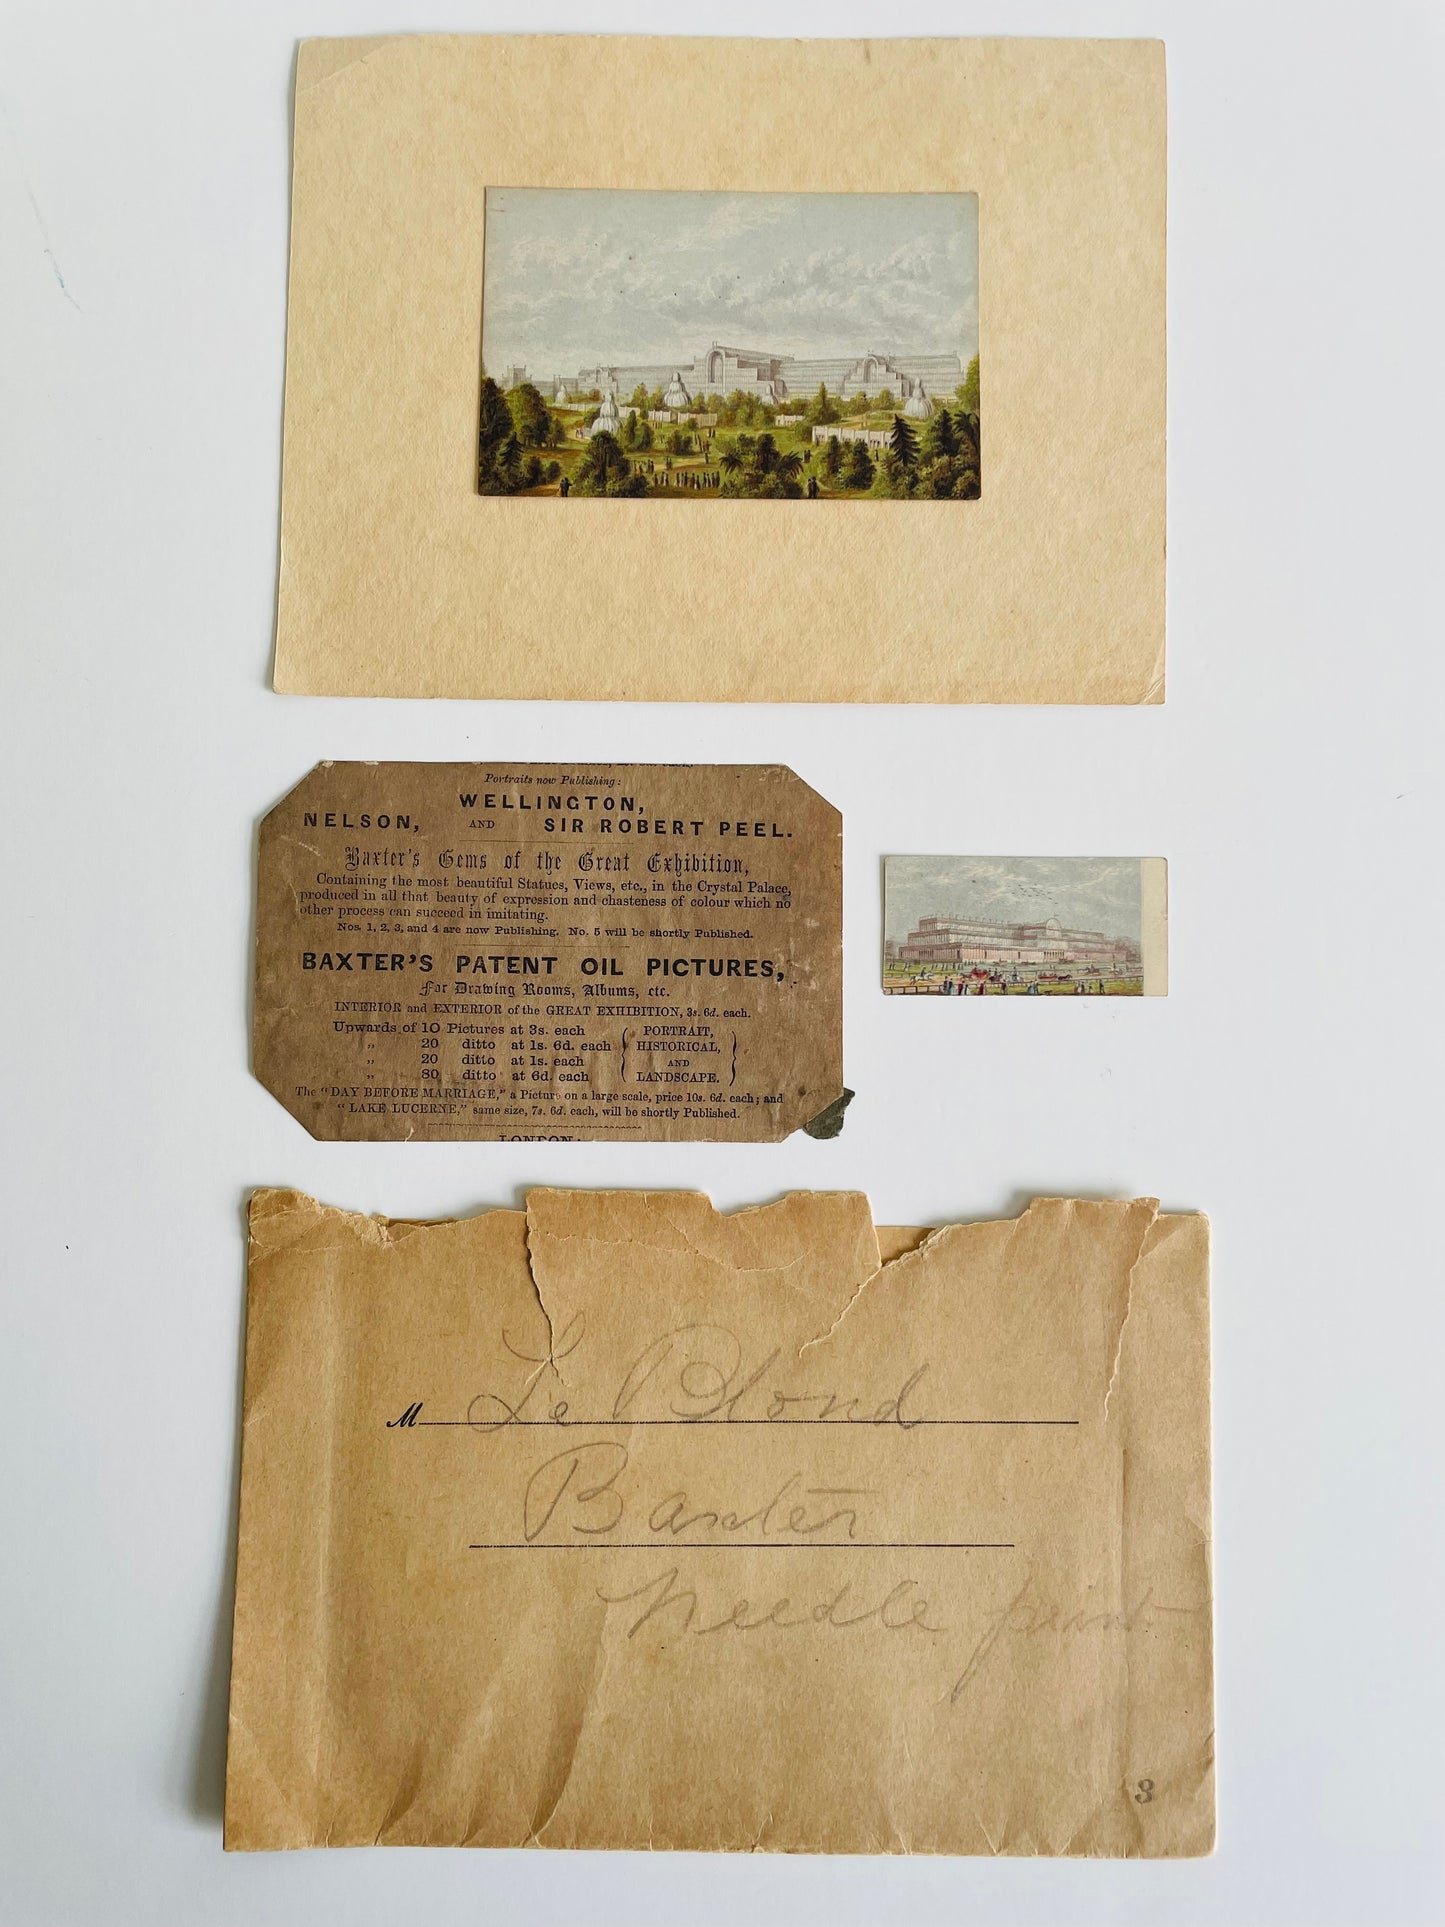 Portraits now Publishing:
WELLINGTON,
NELSON, AND SIR ROBERT PEEL.
Baxter's Gems of the Great Exhibition,
Containing the most beautiful Statues, Views, etc., in the Crystal Palace,
produced in all that beauty of expression and chasteness of colour which no
other process can succeed in imitating.
Nos. 1, 2, 3, and 4 are now Publishing. No. 5 will be shortly Published.
BAXTER'S PATENT OIL PICTURES,
For Drawing Rooms, Albums, etc.
INTERIOR and EXTERIOR of the GREAT EXHIBITION, 3s. 6d. each.
Upwards of 10 Pictures at 3s. each { PORTRAIT,
„ 20 ditto at 1s. 6d. each HISTORICAL,
„ 20 ditto at 1s. each AND
„ 80 ditto at 6d. each LANDSCAPE. }
The "DAY BEFORE MARRIAGE," a Picture on a large scale, price 10s. 6d. each; and
"LAKE LUCERNE," same size, 7s. 6d. each, will be shortly Published.
LONDON:
M Le Blond
Baxter
Needle print
3